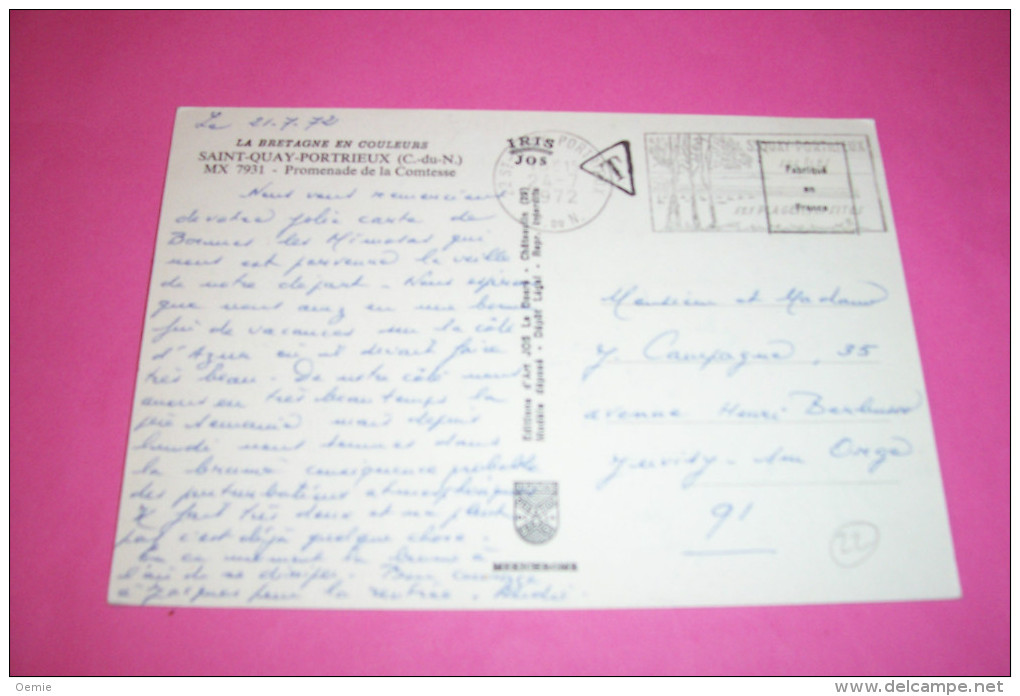 Le 21.7.72
LA BRETAGNE EN COULEURS
SAINT-QUAY-PORTRIEUX (C.-du-N.)
MX 7931 - Promenade de la Comtesse
Nous vous remercions
de votre jolie carte de
Bormes les Mimosas qui
nous est parvenue la veille
de notre départ. Nous espérons
que vous avez eu une bonne
fin de vacances sur la côte
d'Azur où il devait faire
très beau. De notre côté nous
avons eu très beau temps la
1ère semaine mais depuis
lundi nous sommes dans
la brume conséquence probable
des perturbations atmosphériques
Il fait très doux et ne pleut
pas c'est déjà quelque chose.
En ce moment la brume a
l'air de se dissiper. Bon courage
à Jacques pour la rentrée.
IRIS
JOS
Editions d'Art JOS Le Doaré - Châteaulin (29)
Modèle déposé - Dépôt Légal - Repr. Interdite
MEXICHROME
T
1972
ST QUAY PORTRIEUX
SES PLAGES
Fabriqué
en
France
Monsieur et Madame
J. Campagne, 35
avenue Henri Barbusse
Juvisy-sur Orge
91
22
Oemie
delcampe.net